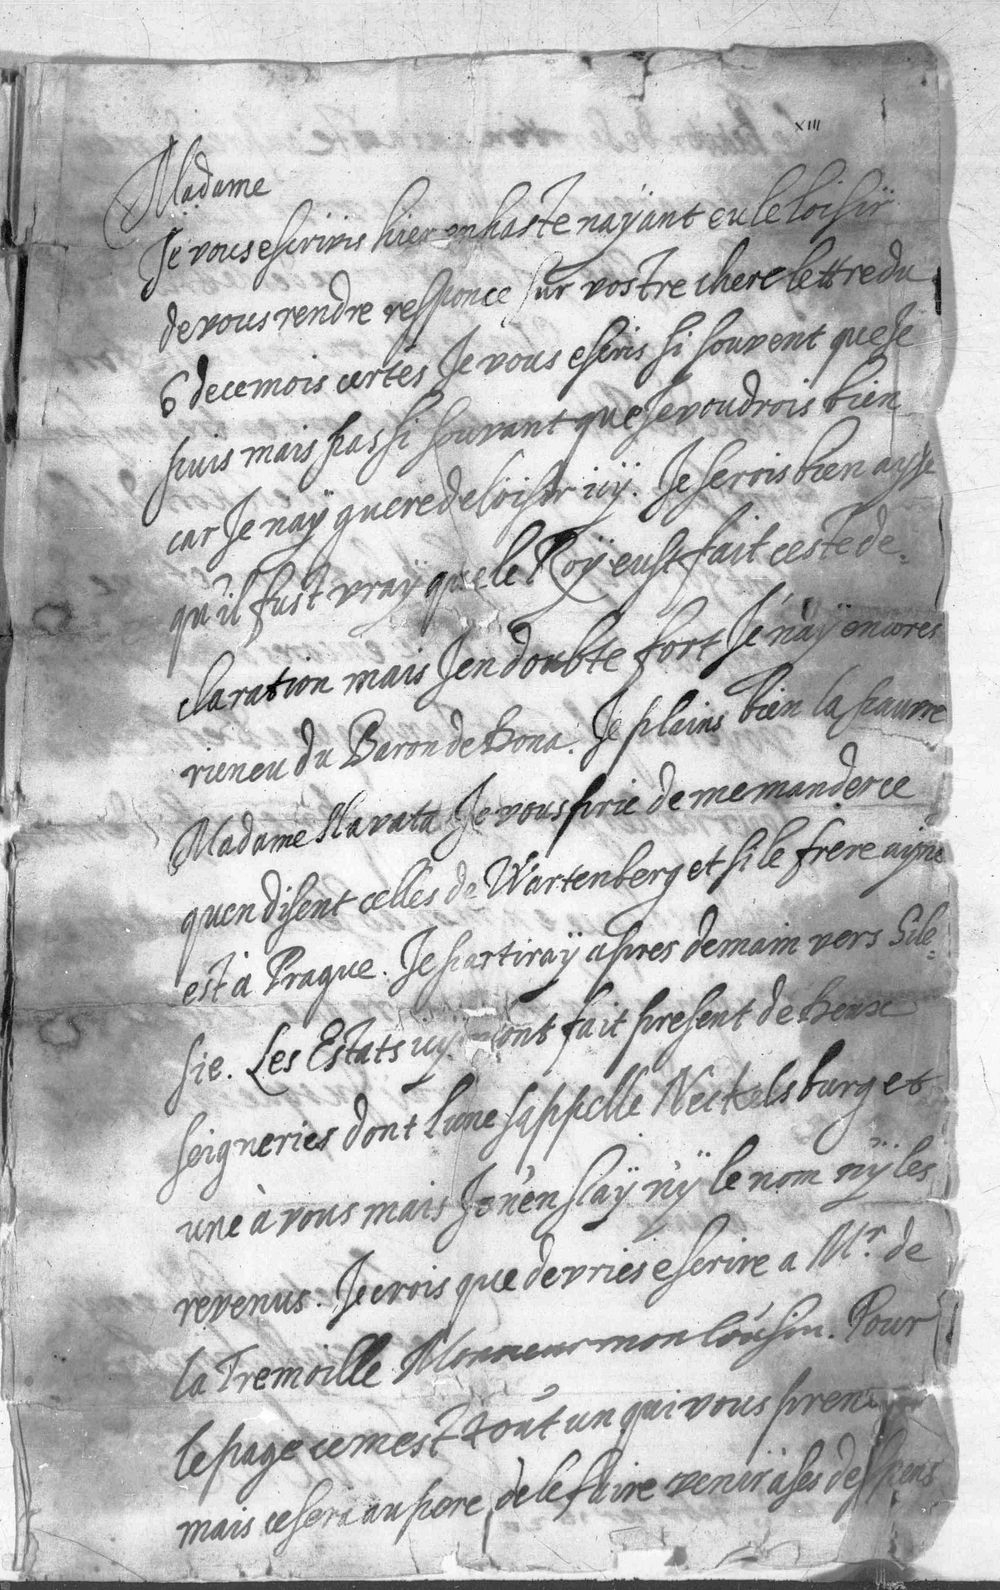 XIII
Madame
Je vous escrivis hier en haste nayant eu le loisir
de vous rendre responce sur vostre chere lettre du
6 de ce mois certes Je vous escris si souvent que Je
puis mais pas si souvant que Je voudrois bien
car Je nay guere de loisir icy. Je serois bien aysse
qu'il fust vray que le Roy eust fait ceste de-
claration mais Jen doubte fort Je n'ay encores
rien eu du Baron de Dona. Je plains bien la pauvre
Madame Slavata Je vous prie de me mander ce
quen disent celles de Wartenberg et si le frere aisne
est à Prague. Je partiray apres demain vers Sile-
sie. Les Estats icy mont fait present de deux
seigneries dont l'une sappelle Neckelsburg et
une à vous mais Je n'en sçay n'y le nom n'y les
revenus. Je crois que devries escrire a Mr. de
la Tremoille Monsieur mon Cousin. Pour
le page ce mest tout un qui vous prenes
mais ce sera au pere de le faire venir à ses despens